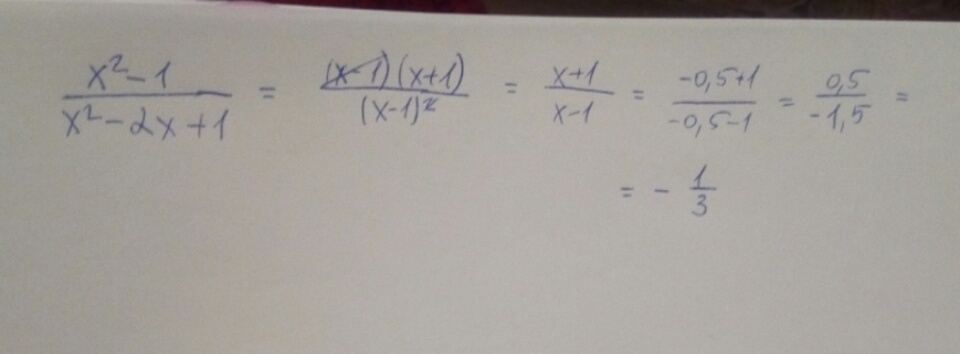 (x²-1)/(x²-2x+1) = ((x-1)(x+1))/((x-1)²) = (x+1)/(x-1) = (-0,5+1)/(-0,5-1) = 0,5/(-1,5) =
= - 1/3